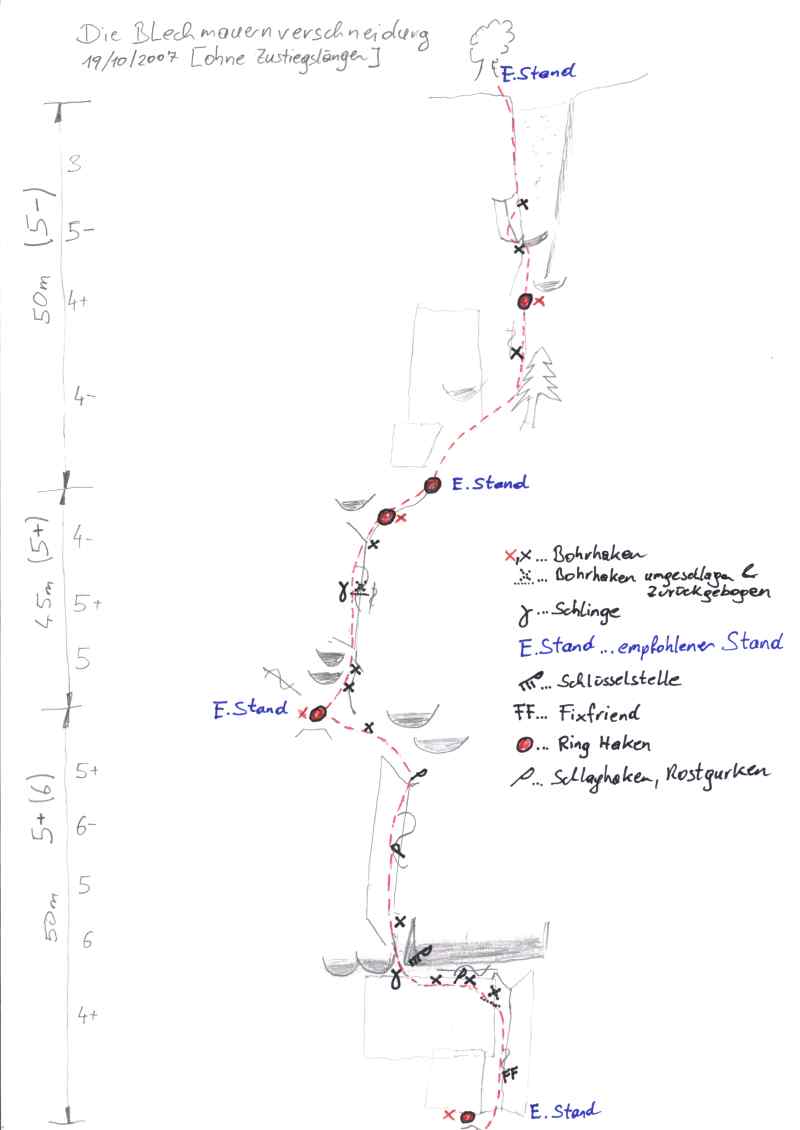 Die Blechmauernverschneidung
19/10/2007 [ohne Zustiegslängen]
E.Stand
3
5-
4+
4-
50m (5-)
E.Stand
4-
5+
5
45m (5+)
x,x... Bohrhaken
... Bohrhaken umgeschlagen &
zurückgebogen
γ... Schlinge
E.Stand ... empfohlener Stand
... Schlüsselstelle
FF... Fixfriend
... Ring Haken
... Schlaghaken, Rostgurken
E.Stand
5+
6-
5
6
4+
50m 5+(6)
FF
E.Stand